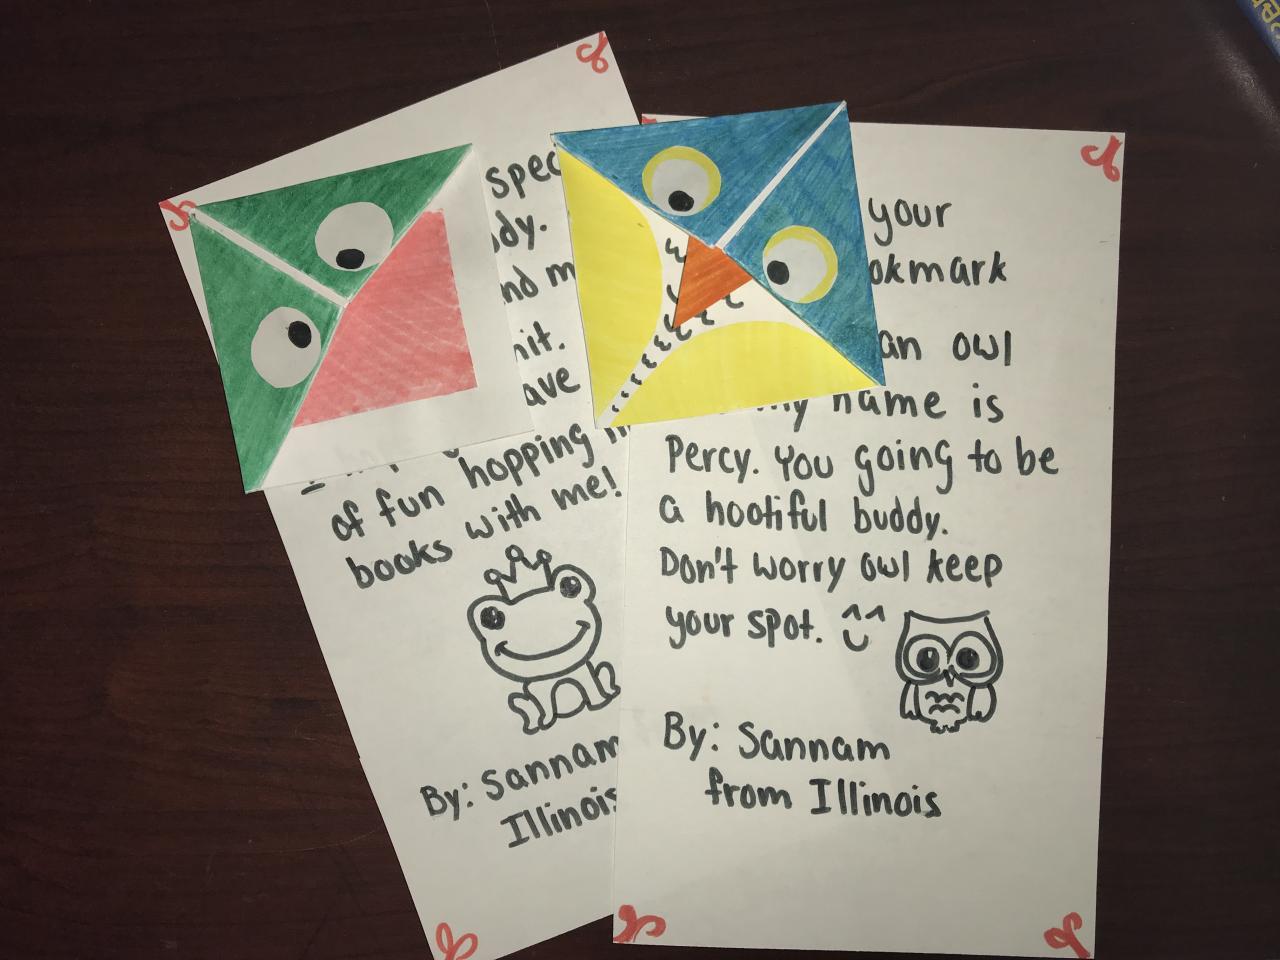 spec
dy.
nd m
nit.
ave
of fun hopping in
books with me!
By: Sannam
Illinois
your
okmark
an owl
my name is
Percy. You going to be
a hootiful buddy.
Don't worry owl keep
your spot.
By: Sannam
from Illinois